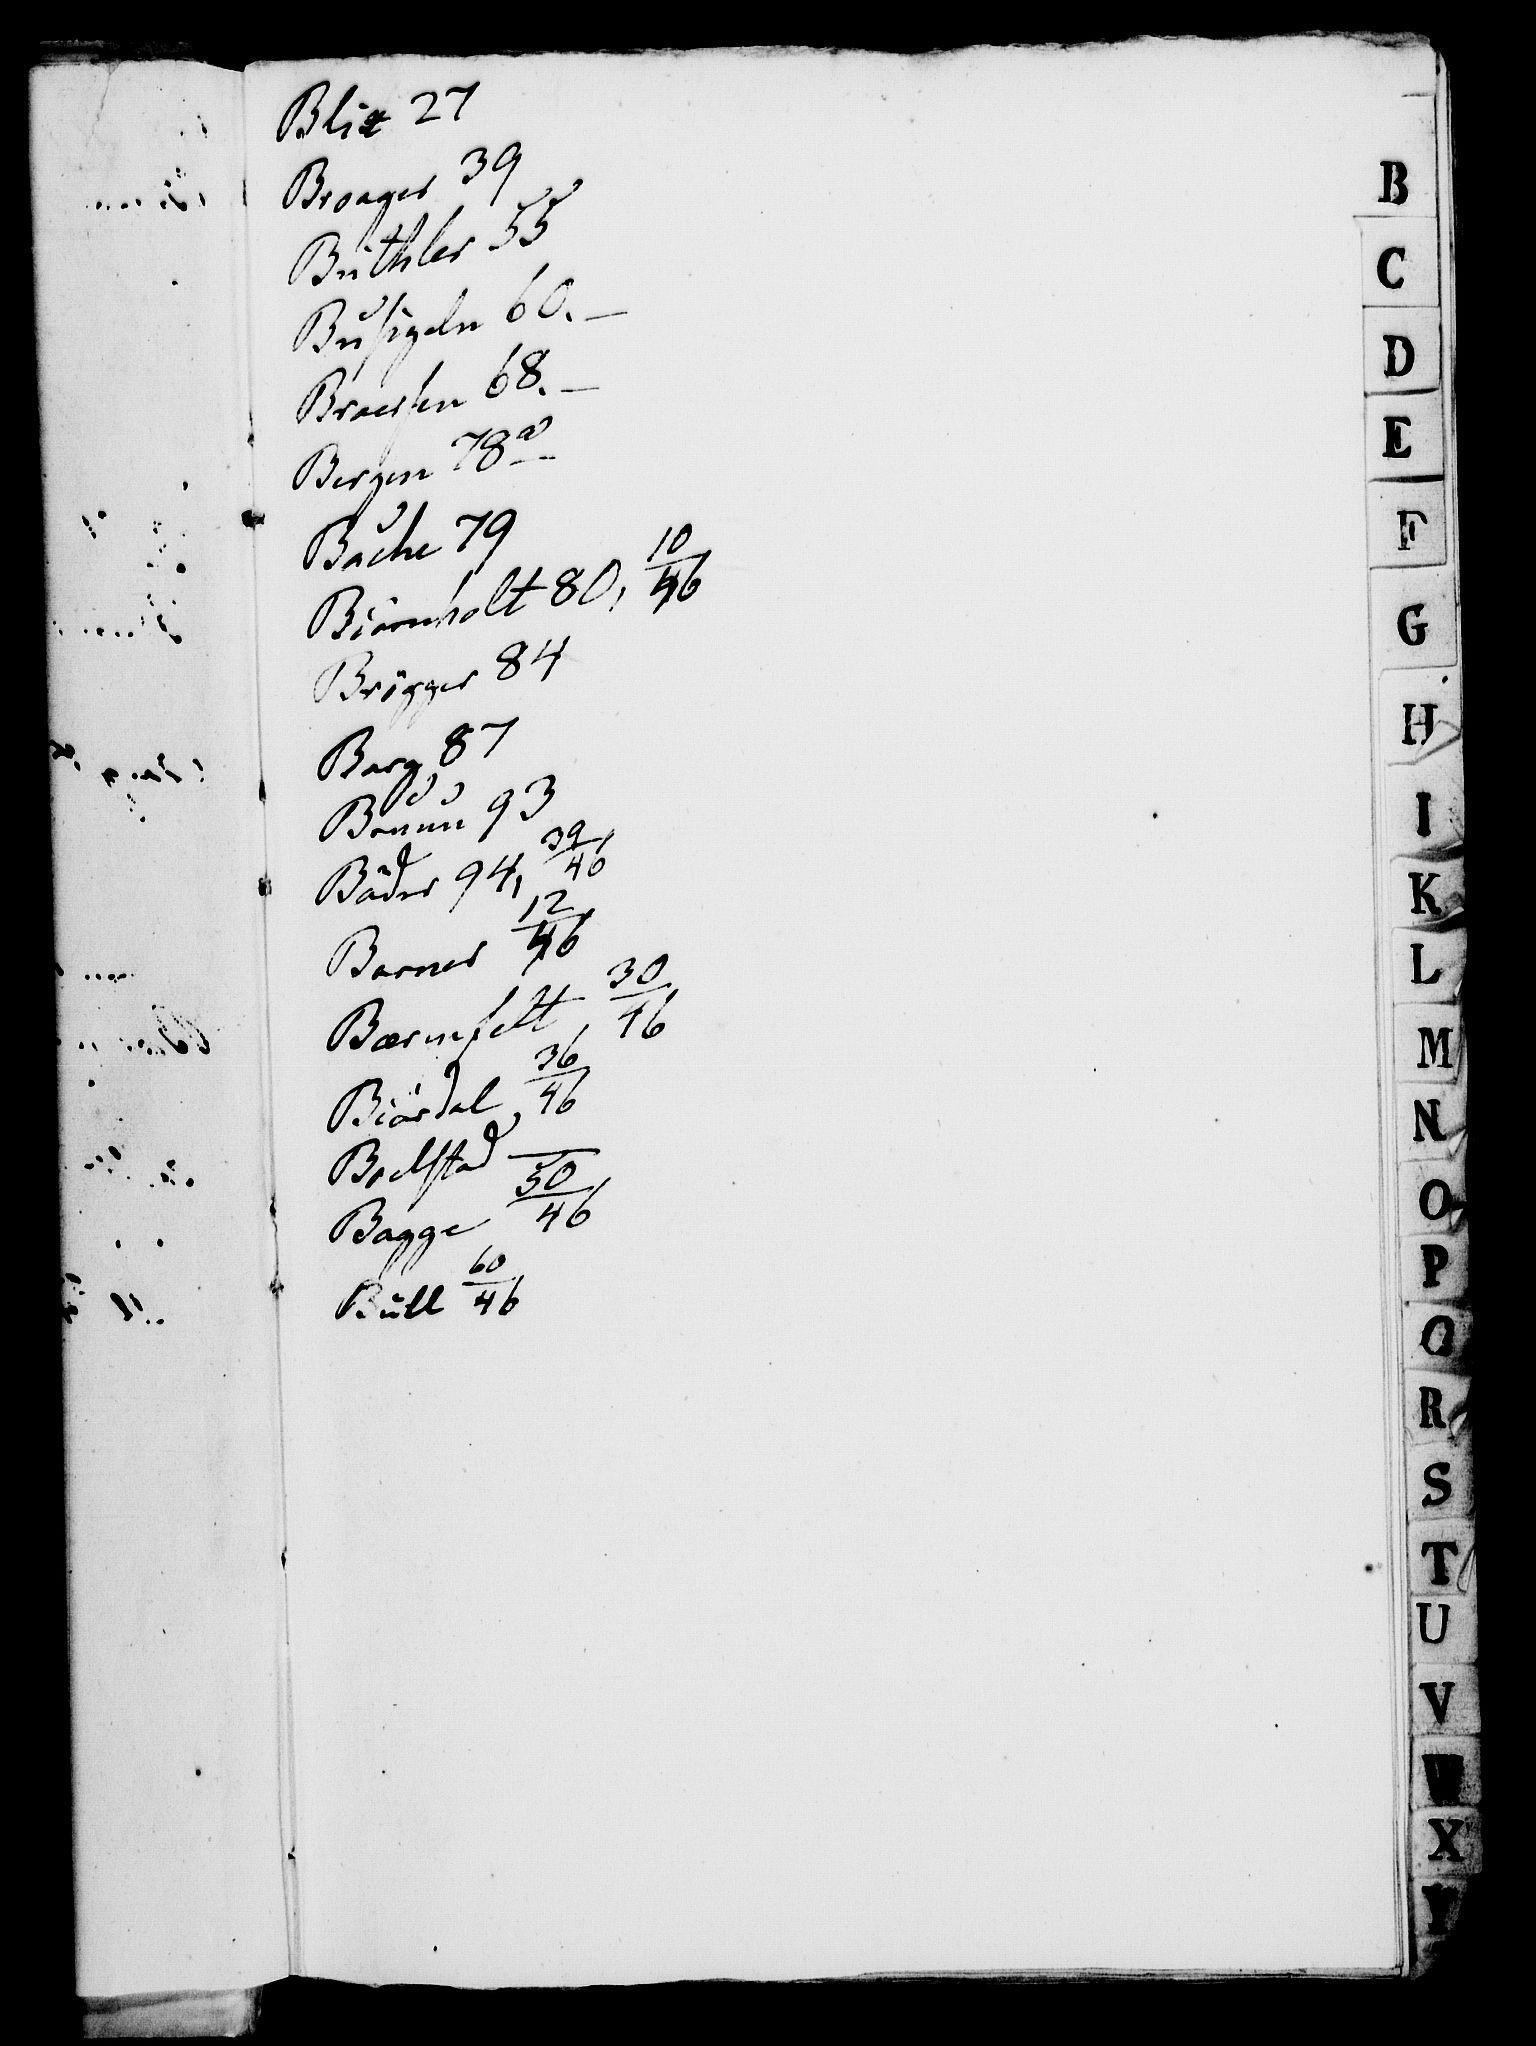 Blix 27
Broager 39
Büthler 55
Busigeln 60. —
Braersen 68. —
Bergen 78 a
Buche 79
Biörnholt 80, 10/46
Brögger 84
Barg 87
Bruun 93
Böder 94, 39/46
Barner 12/46
Bærnfelt, 30/46
Biördal, 36/46
Bolstad —
Bagge 50/46
Bull 60/46
B
C
D
E
F
G
H
I
K
L
M
N
O
P
Q
R
S
T
U
V
W
X
Y